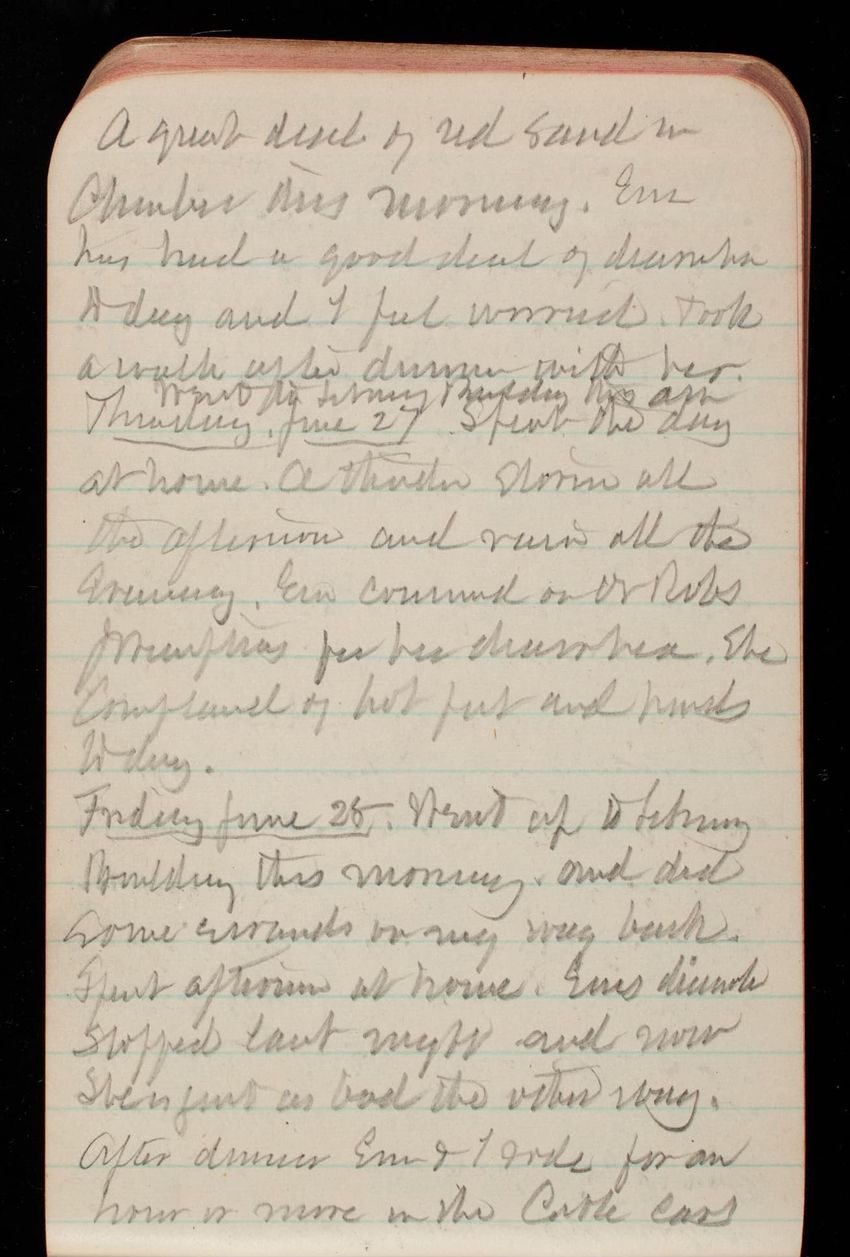 A great deal of red sand in
Chamber this morning. Em
has had a good deal of diarrhea
to day and I feel worried. Took
a walk after dinner with her.
Went to Library Building this aftn
Thursday, June 27. Spent the day
at home. A thunder storm all
the afternoon and rain all the
Evening. Em commend on Dr Robs
prescriptions for her diarrhea. She
Complained of hot feet and hands
to day.
Friday June 28. Went up to Library
Building this morning. and did
some errands on my way back.
Spent afternoon at home. Ems diarrh
stopped last night and now
she is just as bad the other way.
After dinner Em & I rode for an
hour or more in the Cable cars